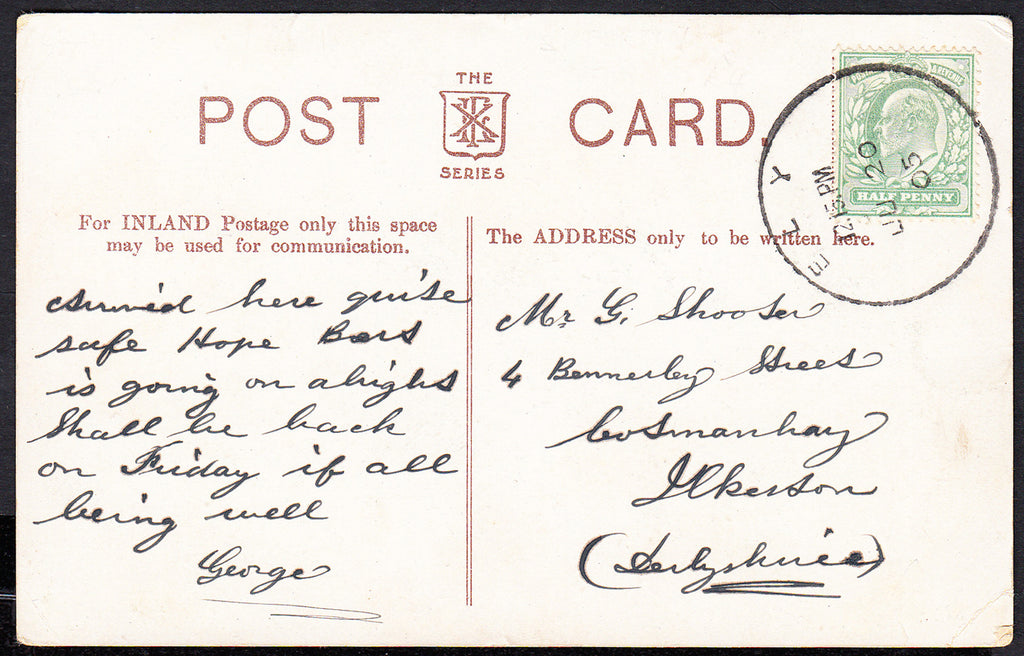 THE
POST CARD.
SERIES
For INLAND Postage only this space
may be used for communication.
The ADDRESS only to be written here.
HALF PENNY
ELY
12.15 PM
JU 20
05
Arrived here quite
safe Hope Bert
is going on alright
Shall be back
on Friday if all
being well
George
Mr G. Shooter
4 Bennerley Street
Cotmanhay
Ilkeston
(Derbyshire)